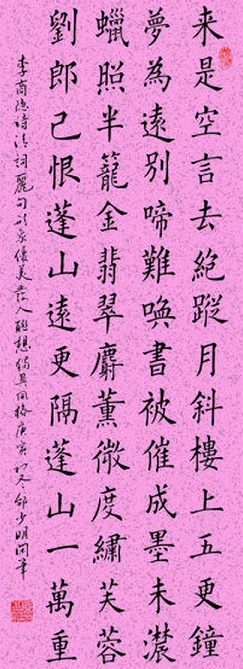 来是空言去絕蹤月斜樓上五更鐘
夢為遠別啼難喚書被催成墨未濃
蠟照半籠金翡翠麝薰微度繡芙蓉
劉郎已恨蓬山遠更隔蓬山一萬重
李商隐詩清詞麗句優美发人聯想獨具風格庚寅初冬少明筆